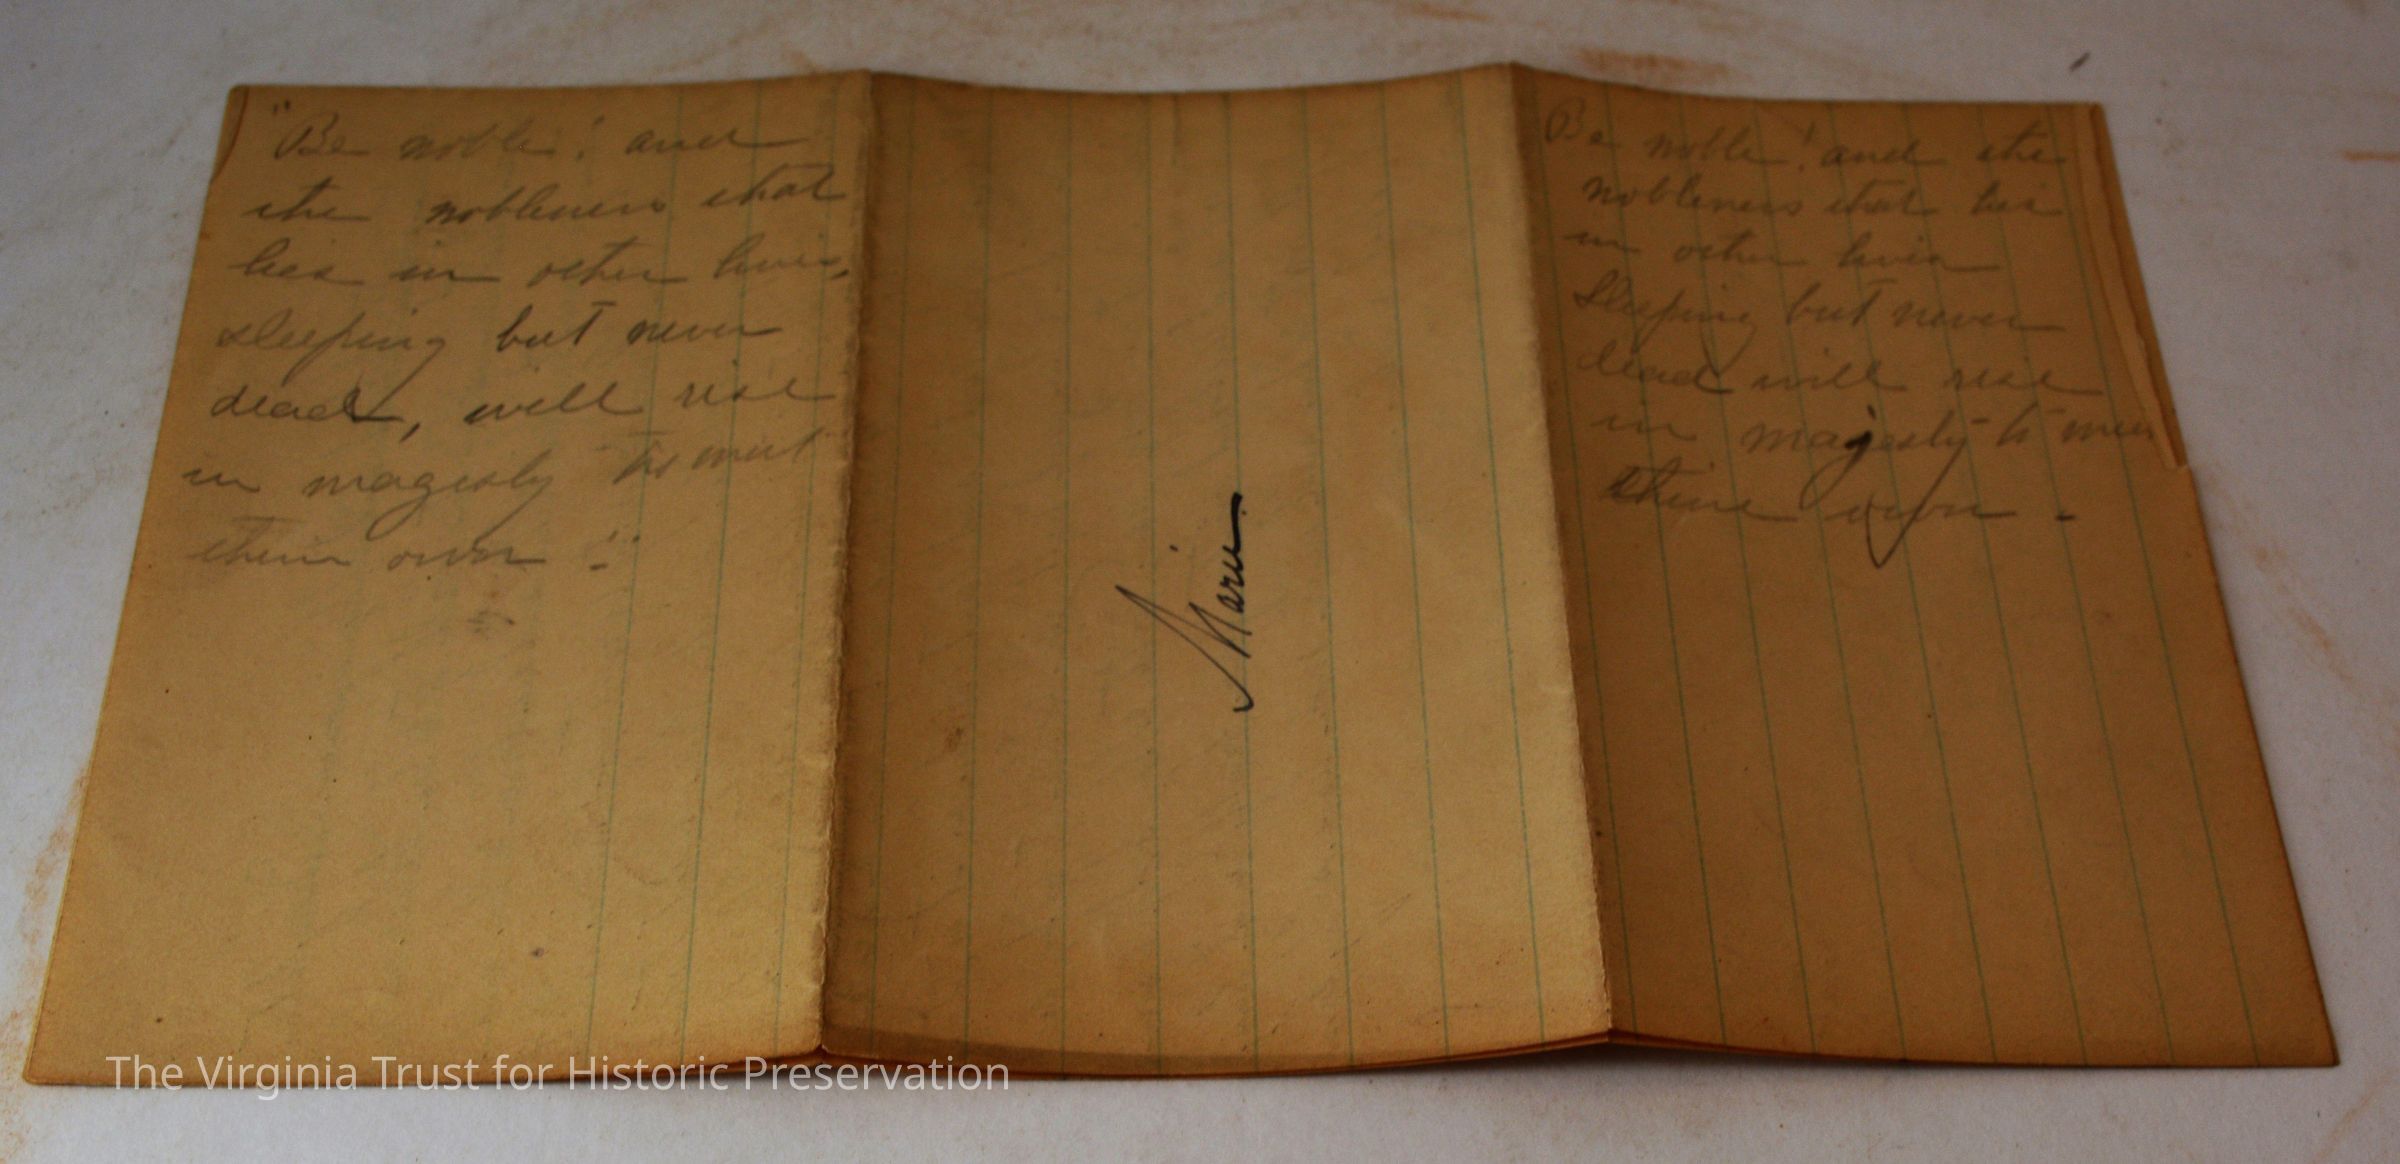 "Be noble! and
the nobleness that
lies in other lives,
sleeping but never
dead, will rise
in magesty to meet
their own."
Marie
Be noble! and the
nobleness that lies
in other lives
sleeping but never
dead will rise
in majesty to meet
thine own.
The Virginia Trust for Historic Preservation